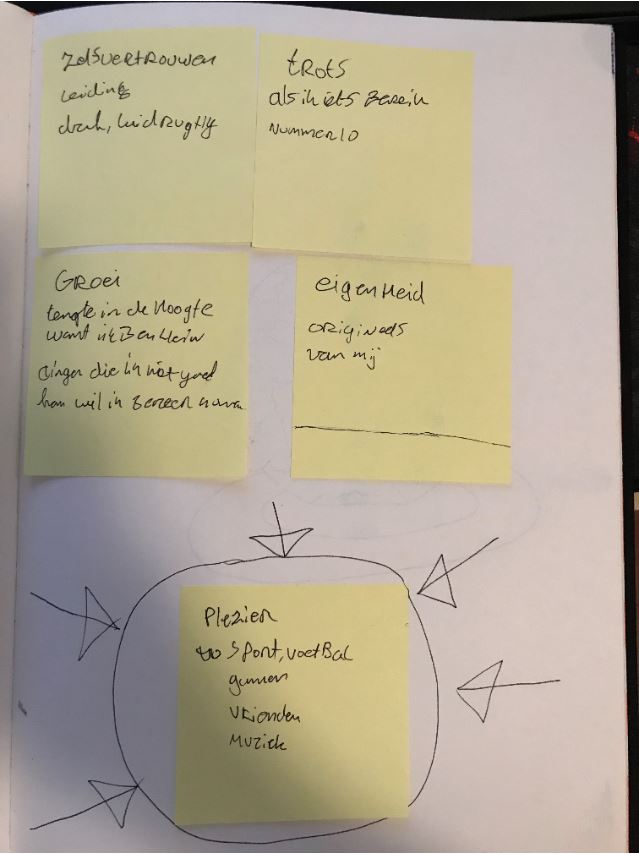 Zelfsvertrouwen
Leiding
druk, luidrugtig
tRots
als ik iets Bereik
nummer 10
Groei
lengte in de Hoogte
want ik Ben klein
dingen die ik niet goed
kan wil ik
eigenheid
origineels
van mij
Plezier
sport, voetBal
gamen
vrienden
Muziek